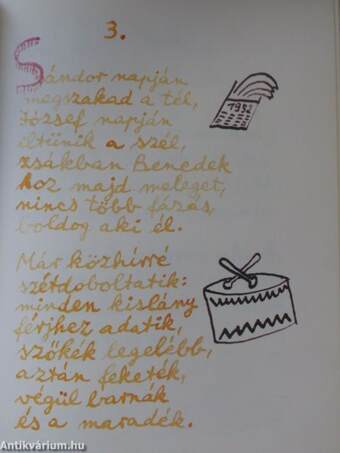 3.
Sándor napján
megszakad a tél,
József napján
eltűnik a szél,
zsákban Benedek
hoz majd meleget,
nincs több fázás,
boldog aki él.
1952
Már közhírré
szétdoboltatik:
minden kislány
férjhez adatik,
szőkék legelébb,
aztán feketék,
végül barnák
és a maradék.
Antikvárium.hu